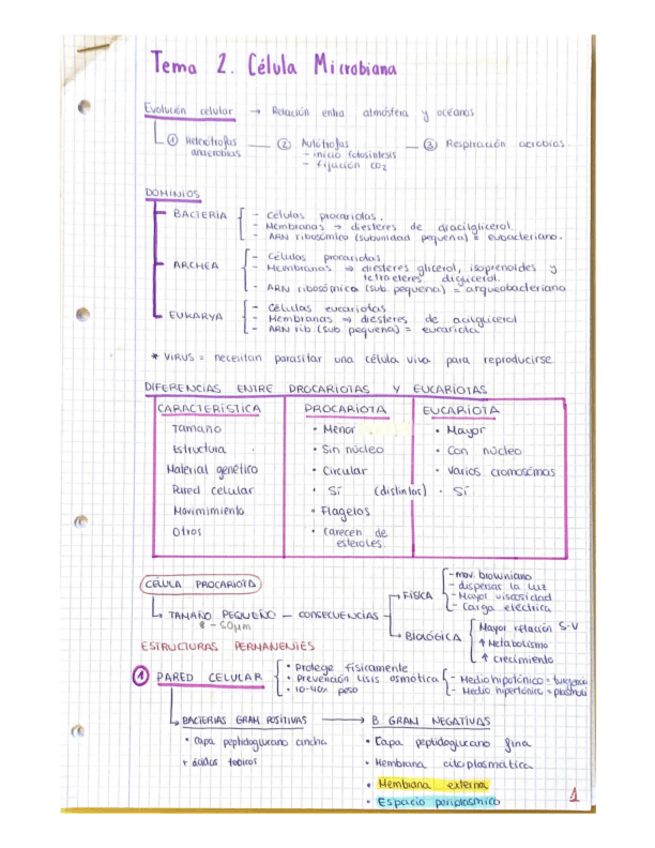 Tema 2. Célula Microbiana
Evolución celular → Relación entre atmósfera y océanos
① Heterótrofas — ② Autótrofas — ③ Respiración aerobias.
anaerobias - inicio fotosíntesis
- fijación CO2
DOMINIOS
BACTERIA - Células procariotas.
- Membranas → diesteres de diacilglicerol.
- ARN ribosómico (subunidad pequeña) = eubacteriano.
ARCHEA - Células procariotas
- Membranas → diesteres glicerol, isoprenoides y
tetraeteres diglicerol.
- ARN ribosómico (sub. pequeña) = arqueobacteriano
EUKARYA - Células eucariotas
- Membranas → diesteres de acilglicerol
- ARN rib (sub pequeña) = eucariota
* VIRUS = necesitan parasitar una célula viva para reproducirse
DIFERENCIAS ENTRE PROCARIOTAS Y EUCARIOTAS
CARACTERÍSTICA PROCARIOTA EUCARIOTA
Tamaño • Menor • Mayor
Estructura • Sin núcleo • Con núcleo
Material genético • Circular • Varios cromosomas
Pared celular • Sí (distintos) • Sí
Movimimiento • Flagelos
Otros • Carecen de
esteroles.
CÉLULA PROCARIOTA
→ TAMAÑO PEQUEÑO — CONSECUENCIAS
- 50μm
→ FÍSICA - mov. browniano
- dispersar la luz
- Mayor viscosidad
- Carga eléctrica
→ BIOLÓGICA Mayor relación S-V
↑ Metabolismo
↑ crecimiento
ESTRUCTURAS PERMANENTES
① PARED CELULAR • Protege físicamente
• Prevención lisis osmótica - Medio hipotónico =
• 10-40% peso - Medio hipertónico =
BACTERIAS GRAM POSITIVAS → B. GRAM NEGATIVAS
• Capa peptidoglucano ancha • Capa peptidoglucano fina
+ ácidos • Membrana citoplasmática
• Membrana externa
• Espacio periplásmico
1